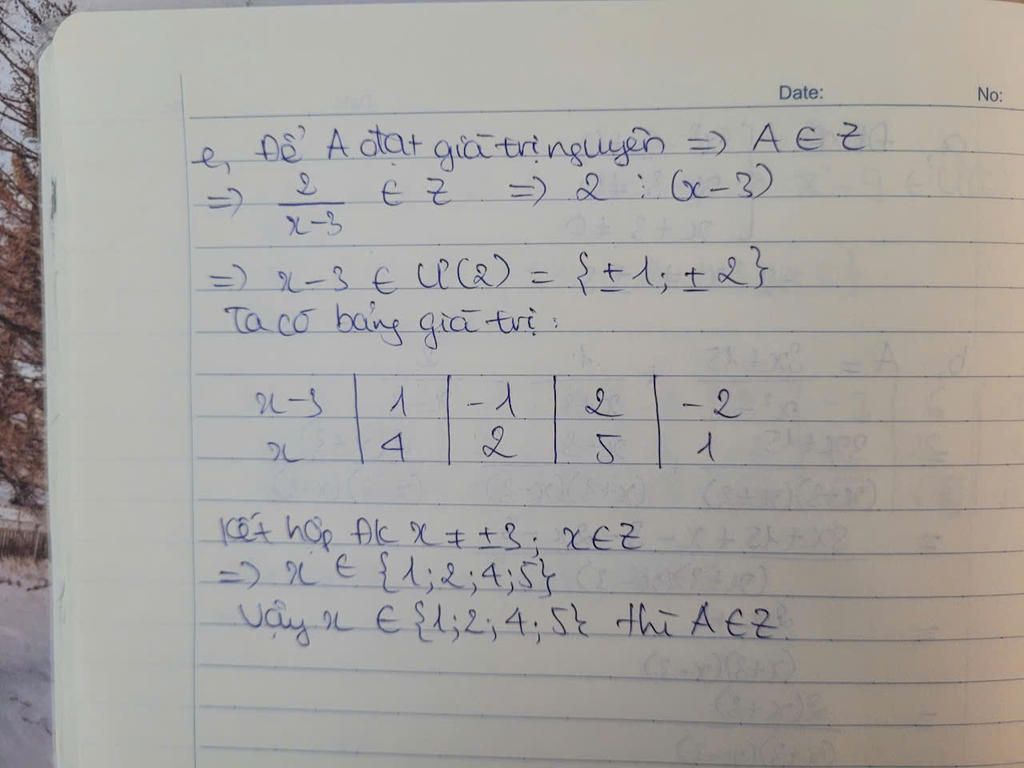 Date:
No:
e, Để A đạt giá trị nguyên => A ∈ Z
=> 2/(x-3) ∈ Z => 2 ⋮ (x-3)
=> x-3 ∈ Ư(2) = {±1; ±2}
Ta có bảng giá trị:
x-3 | 1 | -1 | 2 | -2
x | 4 | 2 | 5 | 1
Kết hợp ĐK x ≠ ±3; x∈Z
=> x ∈ {1;2;4;5}
Vậy x ∈ {1;2;4;5} thì A∈Z.